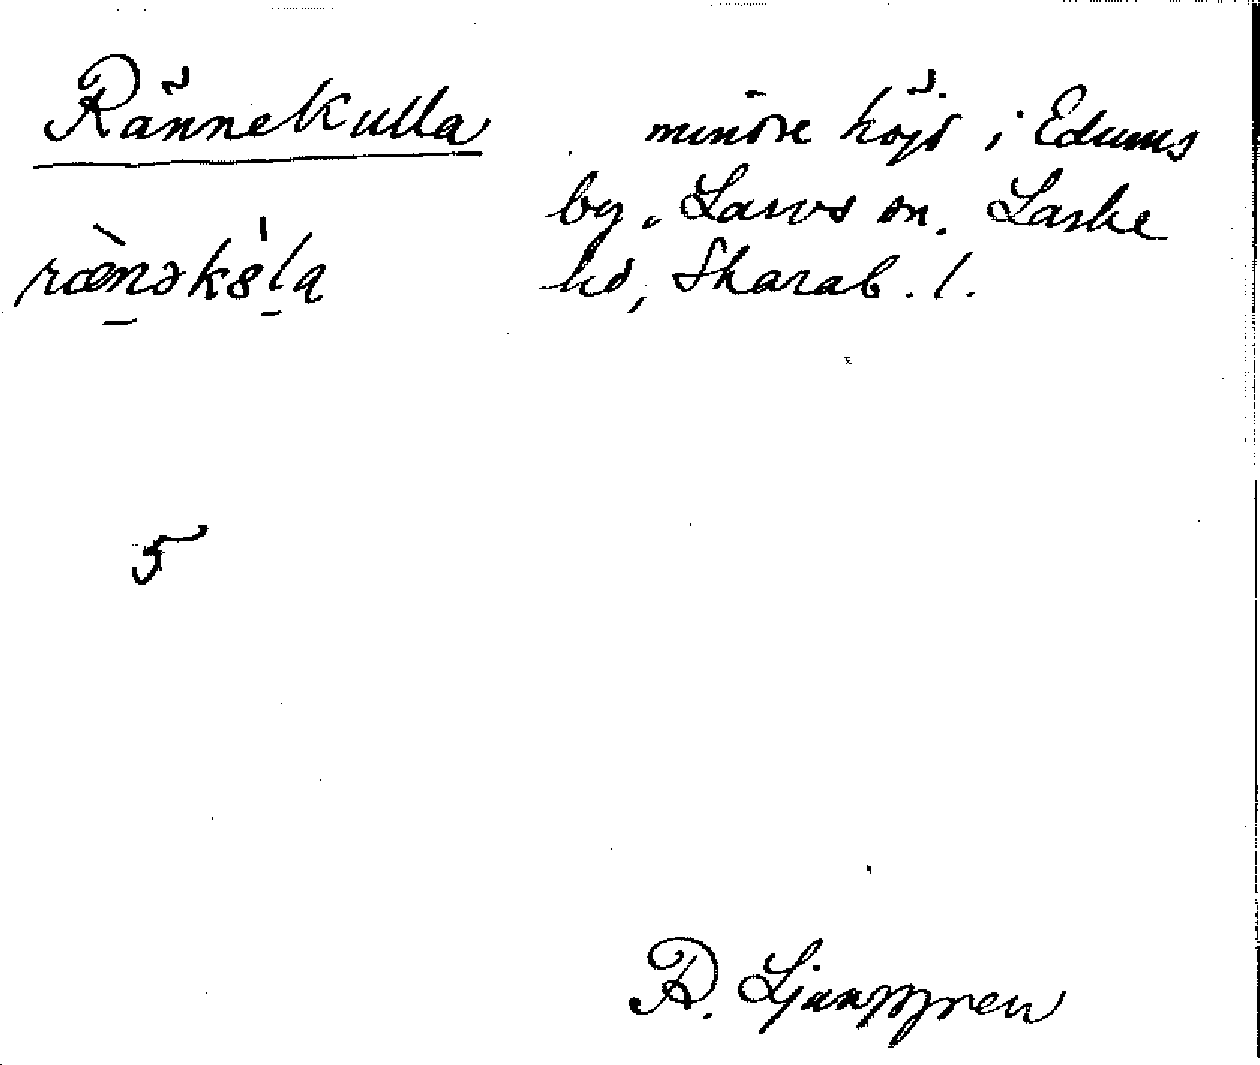 Rännekulla
ræ̀nəkɞ́la
mindre höjd i Edums
by. Larvs sn. Laske
hd, Skarab. l.
5
R. Ljunggren